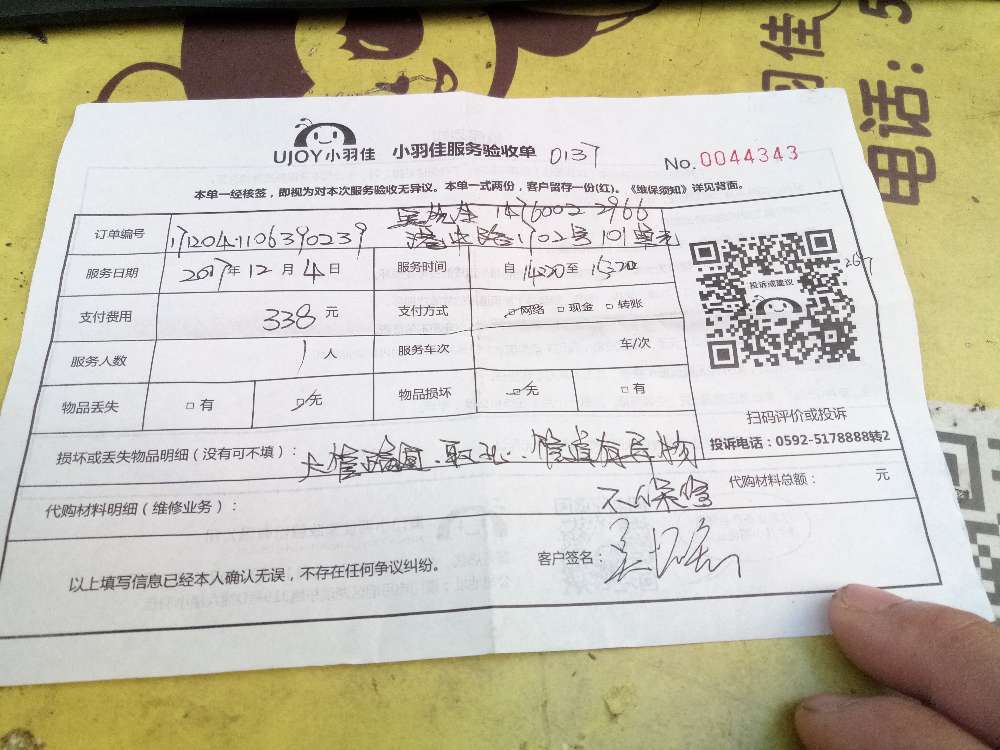 羽佳
电话：5
UJOY小羽佳 小羽佳服务验收单 0137
No.0044343
本单一经核签，即视为对本次服务验收无异议。本单一式两份，客户留存一份(红)。《维保须知》详见背面。
订单编号
港中路1702号101单元
服务日期 2017年12月4日 服务时间 自1420至1520
支付费用 338元 支付方式 网络 现金 转账
服务人数 1人 服务车次 车/次
物品丢失 有 无 物品损坏 有 无
投诉或建议
267
扫码评价或投诉
投诉电话：0592-5178888转2
损坏或丢失物品明细（没有可不填）：
管道有异物
不保
代购材料明细（维修业务）： 代购材料总额： 元
以上填写信息已经本人确认无误，不存在任何争议纠纷。 客户签名：